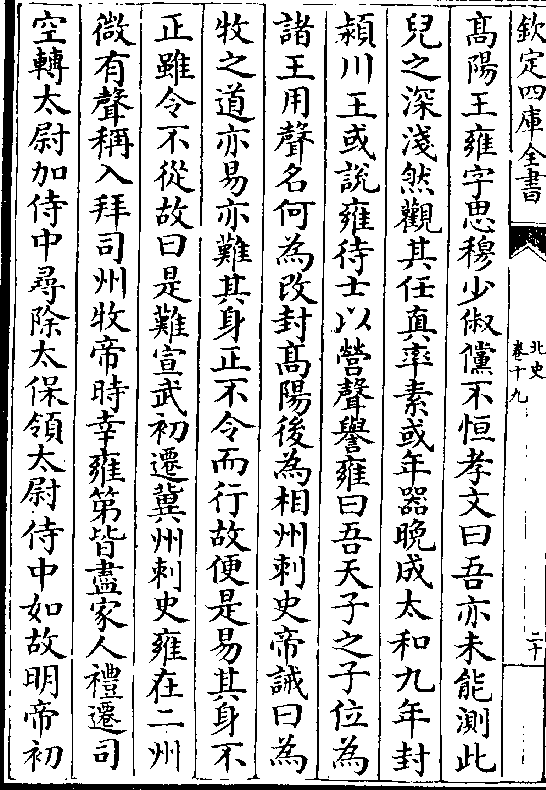 欽定四庫全書
北史
卷十九
二十
髙陽王雍字思穆少俶儻不恒孝文曰吾亦未能測此
兒之深淺然觀其任真率素或年器晚成太和九年封
潁川王或説雍待士以營聲譽雍曰吾天子之子位為
諸王用聲名何為改封髙陽後為相州刺史帝誡曰為
牧之道亦易亦難其身正不令而行故便是易其身不
正雖令不從故曰是難宣武初遷冀州刺史雍在二州
微有聲稱入拜司州牧帝時幸雍第皆盡家人禮遷司
空轉太尉加侍中尋除太保領太尉侍中如故明帝初